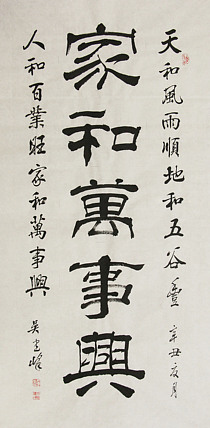 家和萬事興
天和風雨順地和五谷豐 辛丑夏月
人和百業旺家和萬事興